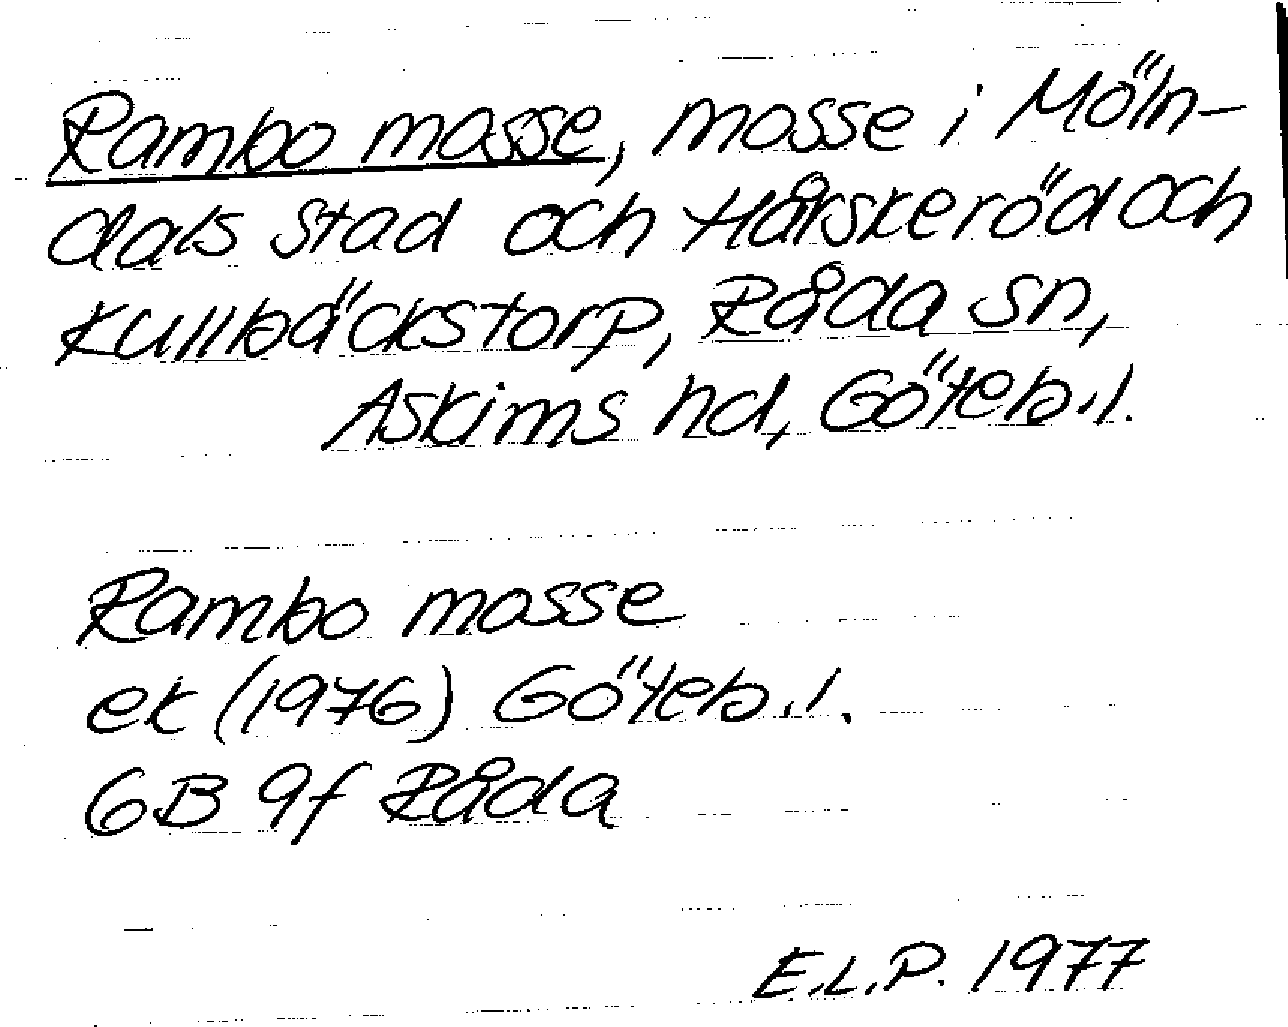 Rambo mosse, mosse i Möln-
dals stad och Hårskeröd och
Kullbäckstorp, Råda sn,
Askims hd, Göteb.l.
Rambo mosse
ek (1976) Göteb.l.
6B 9f Råda
E.L.P. 1977